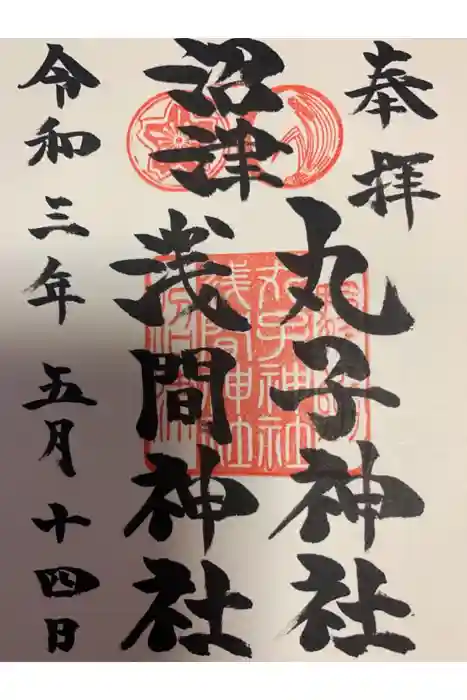 奉拝
丸子神社
沼津
浅間神社
令和三年五月十四日